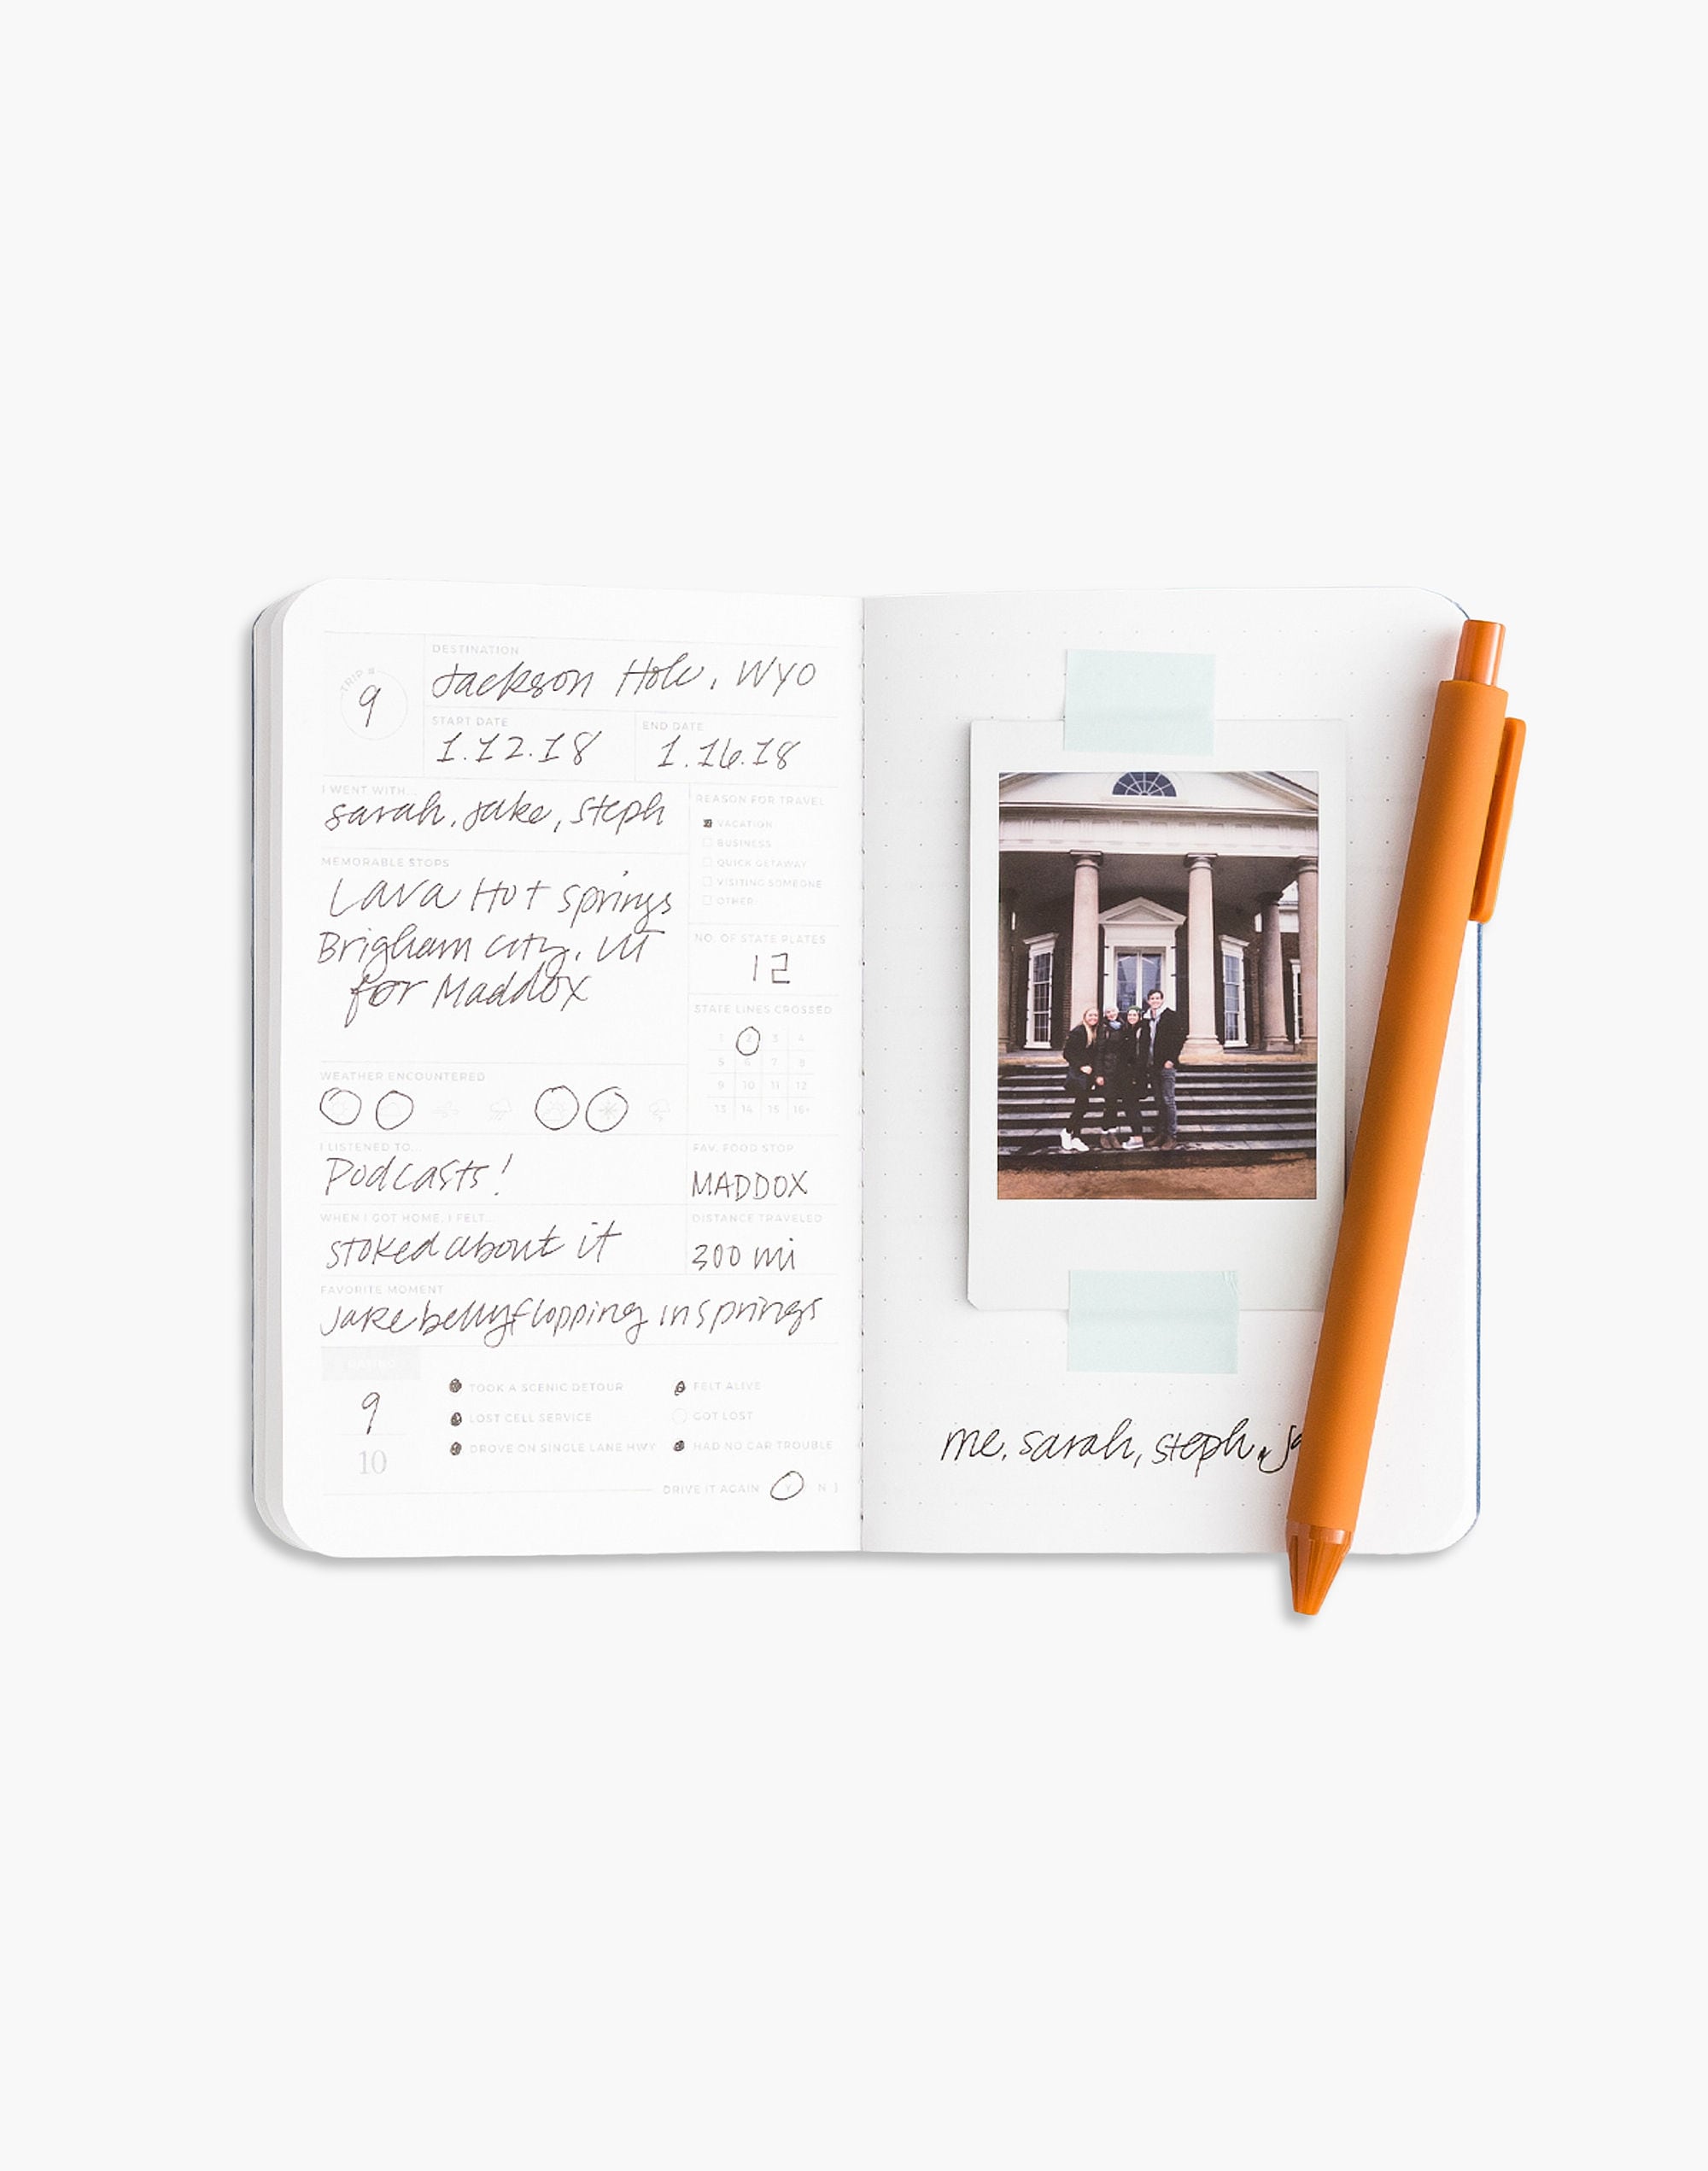 TRIP #
9
DESTINATION
Jackson Hole, WYO
START DATE
1.12.18
END DATE
1.16.18
I WENT WITH...
sarah, Jake, Steph
REASON FOR TRAVEL
VACATION
BUSINESS
QUICK GETAWAY
VISITING SOMEONE
OTHER:
MEMORABLE STOPS
Lava Hot springs
Brigham city, UT
for Maddox
NO. OF STATE PLATES
12
STATE LINES CROSSED
1 2 3 4
5 6 7 8
9 10 11 12
13 14 15 16+
WEATHER ENCOUNTERED
I LISTENED TO...
Podcasts!
FAV. FOOD STOP
MADDOX
WHEN I GOT HOME, I FELT...
stoked about it
DISTANCE TRAVELED
300 mi
FAVORITE MOMENT
Jake bellyflopping in springs
RATING
9
10
TOOK A SCENIC DETOUR
LOST CELL SERVICE
DROVE ON SINGLE LANE HWY
FELT ALIVE
GOT LOST
HAD NO CAR TROUBLE
DRIVE IT AGAIN Y N
me, sarah, steph,